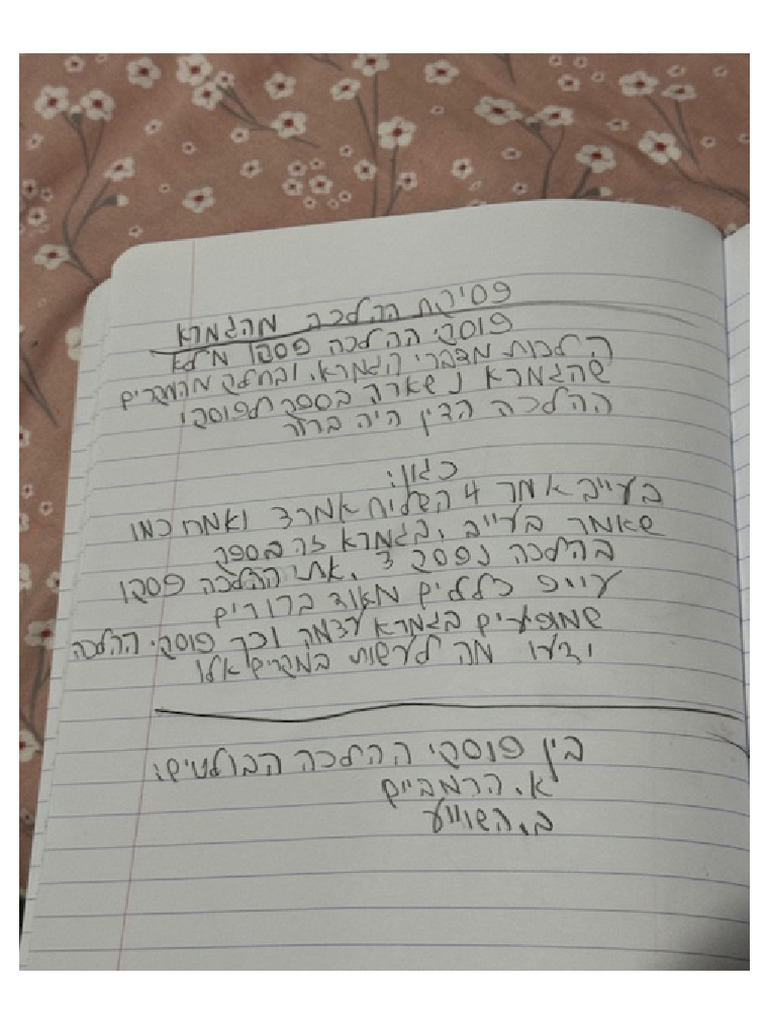 פסיקת ההלכה מהגמרא
פוסקי ההלכה פסקו מלא
הלכות מדברי הגמרא. ובחלק מהמקרים
שהגמרא נשארה בספק לפוסקי
ההלכה הדין היה ברור
כגון:
בעייב אמר 4 השליח אמר 3 ואמח כמו
שאמר בעייב, בגמרא זה בספק
בהלכה נפסק 3. את ההלכה פסקו
עייפ כללים מאוד ברורים
שמופיעים בגמרא עצמה וכך פוסקי ההלכה
ידעו מה לעשות במקרים אלו
בין פוסקי ההלכה הבולטים:
א. הרמביים
ב. השוייע